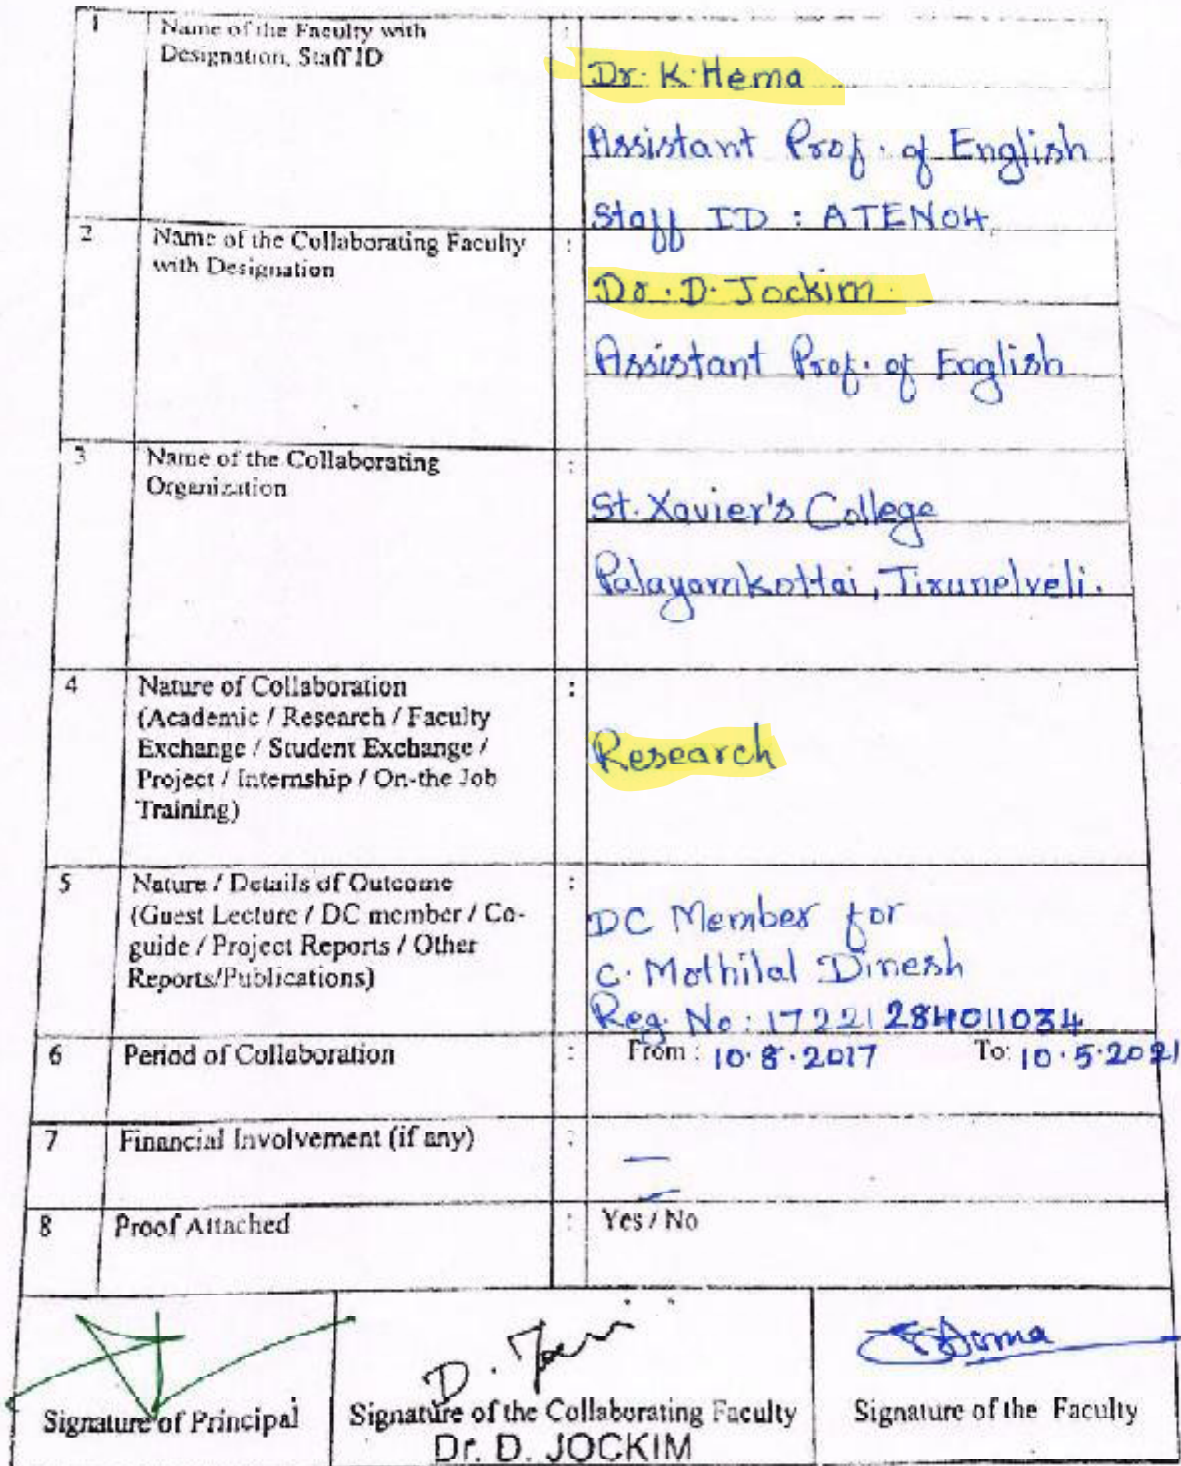 1 Name of the Faculty with : Dr. K. Hema
Designation, Staff ID
Assistant Prof. of English
Staff ID : ATEN04
2 Name of the Collaborating Faculty :
with Designation
Dr. D. Jockim.
Assistant Prof. of English
3 Name of the Collaborating :
Organization
St. Xavier's College
Palayamkottai, Tirunelveli.
4 Nature of Collaboration :
(Academic / Research / Faculty
Exchange / Student Exchange / Research
Project / Internship / On-the Job
Training)
5 Nature / Details of Outcome :
(Guest Lecture / DC member / Co- DC Member for
guide / Project Reports / Other C. Mothilal Dinesh
Reports/Publications)
Reg. No: 17221284011034
6 Period of Collaboration : From : 10.8.2017 To: 10.5.2021
7 Financial Involvement (if any) : —
8 Proof Attached : Yes / No
D.
Signature of Principal Signature of the Collaborating Faculty Signature of the Faculty
Dr. D. JOCKIM